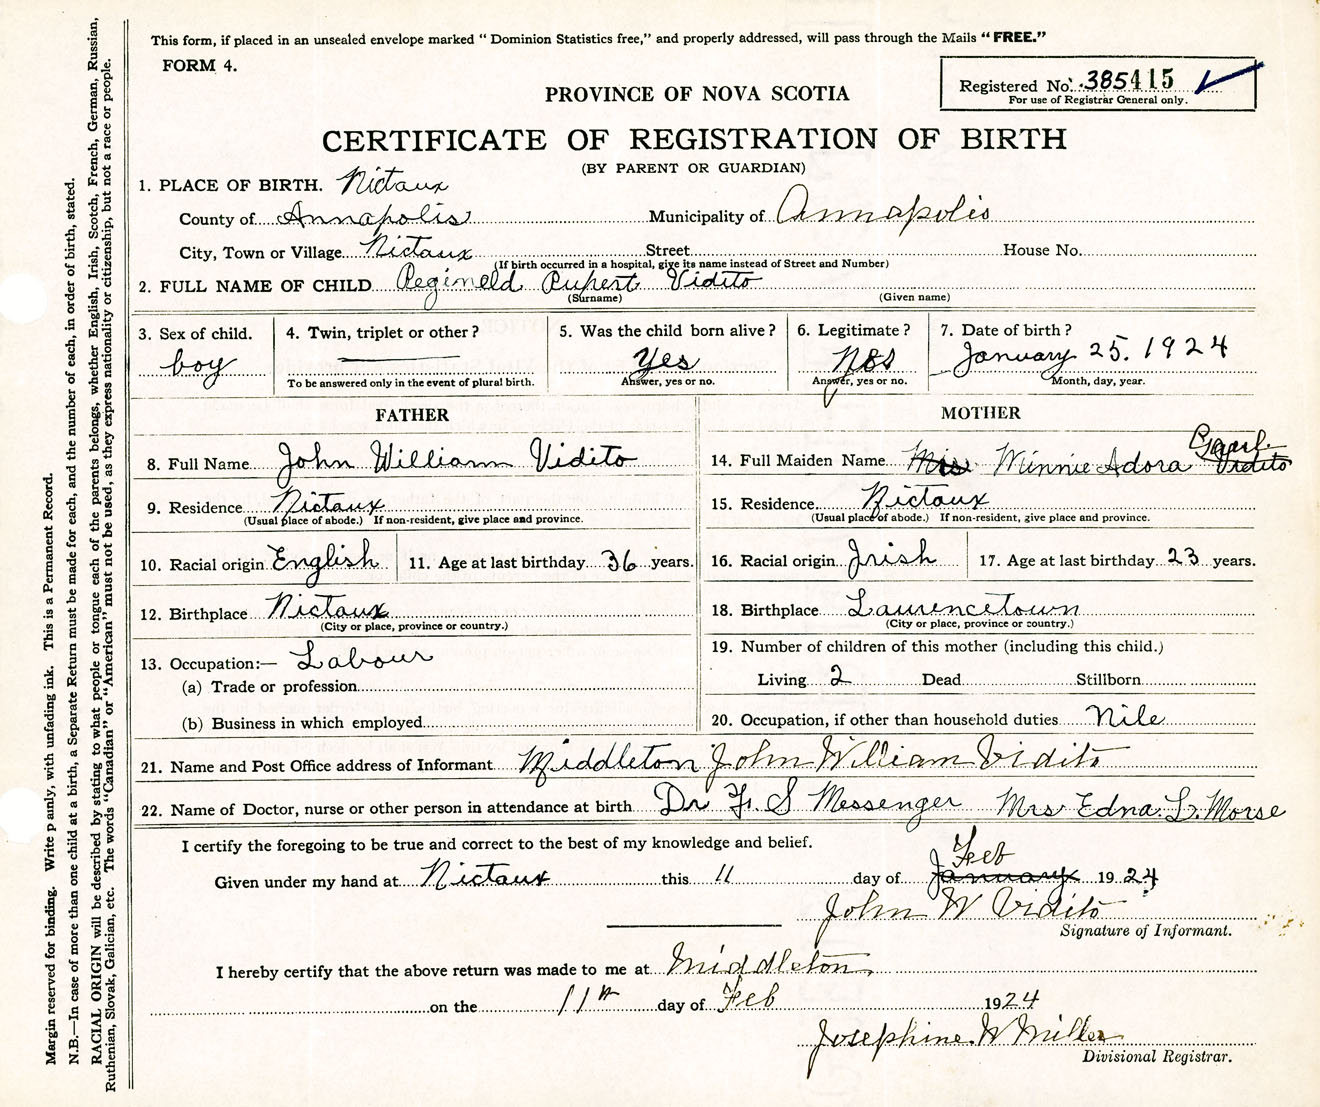 This form, if placed in an unsealed envelope marked "Dominion Statistics free," and properly addressed, will pass through the Mails "FREE."
FORM 4.
Registered No. 385415
For use of Registrar General only.
PROVINCE OF NOVA SCOTIA
CERTIFICATE OF REGISTRATION OF BIRTH
(BY PARENT OR GUARDIAN)
1. PLACE OF BIRTH. Nictaux
County of Annapolis Municipality of Annapolis
City, Town or Village Nictaux Street House No.
(If birth occurred in a hospital, give its name instead of Street and Number)
2. FULL NAME OF CHILD Regineld Rupert Vidito
(Surname) (Given name)
3. Sex of child. 4. Twin, triplet or other? 5. Was the child born alive? 6. Legitimate? 7. Date of birth?
boy Yes January 25. 1924
To be answered only in the event of plural birth. Answer, yes or no. Answer, yes or no. Month, day, year.
FATHER MOTHER
8. Full Name John William Vidito 14. Full Maiden Name Mrs Minnie Adora Vidito
9. Residence Nictaux 15. Residence. Nictaux
(Usual place of abode.) If non-resident, give place and province. (Usual place of abode.) If non-resident, give place and province.
10. Racial origin English 11. Age at last birthday 36 years. 16. Racial origin Irish 17. Age at last birthday 23 years.
12. Birthplace Nictaux 18. Birthplace Laurencetown
(City or place, province or country.) (City or place, province or country.)
13. Occupation:— Labour 19. Number of children of this mother (including this child.)
(a) Trade or profession Living 2 Dead Stillborn
(b) Business in which employed 20. Occupation, if other than household duties Nile
21. Name and Post Office address of Informant Middleton John William Vidito
22. Name of Doctor, nurse or other person in attendance at birth Dr F. S Messenger Mrs Edna. L. Morse
I certify the foregoing to be true and correct to the best of my knowledge and belief.
Given under my hand at Nictaux this 11 day of January Feb 1924
John W Vidito
Signature of Informant.
I hereby certify that the above return was made to me at Middleton
on the 11th day of Feb 1924
Josephine. W Miller
Divisional Registrar.
Margin reserved for binding. Write p anly, with unfading ink. This is a Permanent Record.
N.B.—In case of more than one child at a birth, a Separate Return must be made for each, and the number of each, in order of birth, stated.
RACIAL ORIGIN will be described by stating to what people or tongue each of the parents belongs, whether English, Irish, Scotch, French, German, Russian,
Ruthenian, Slovak, Galician, etc. The words "Canadian" or "American" must not be used, as they express nationality or citizenship, but not a race or people.